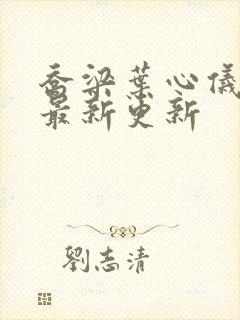 喬梁葉心儀
最新更新
劉志清